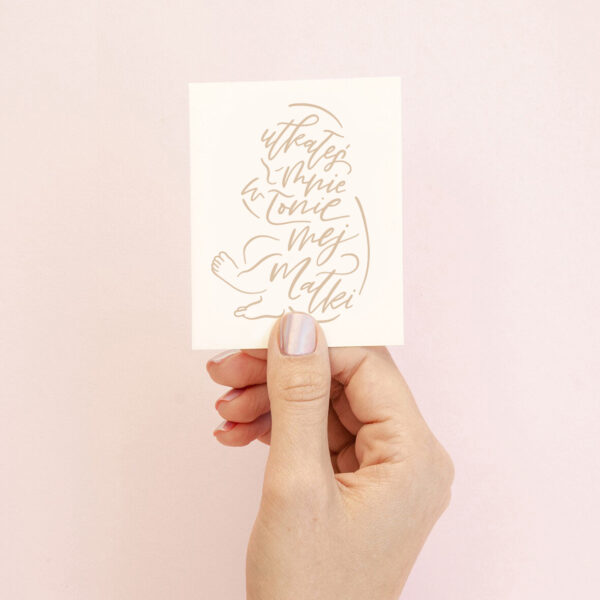 utkałeś
mnie
w łonie
mej
Matki